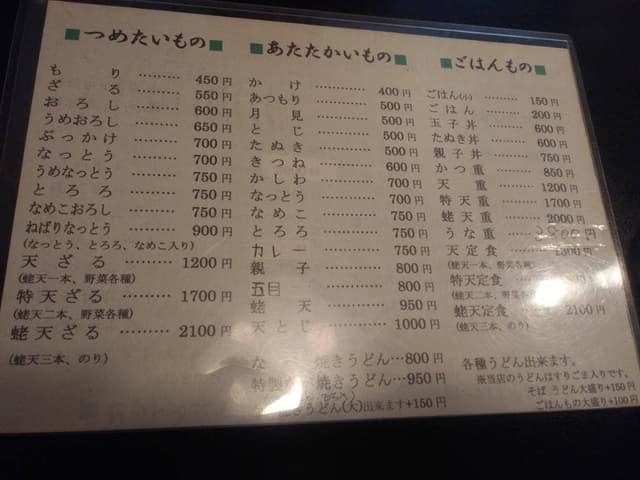 つめたいもの
もり ……… 450円
ざる ……… 550円
おろし ……… 600円
うめおろし ……… 650円
ぶっかけ ……… 700円
なっとう ……… 700円
うめなっとう ……… 750円
とろろ ……… 750円
なめこおろし ……… 750円
ねばりなっとう ……… 900円
(なっとう、とろろ、なめこ入り)
天ざる ……… 1200円
(蛯天一本、野菜各種)
特天ざる ……… 1700円
(蛯天二本、野菜各種)
蛯天ざる ……… 2100円
(蛯天三本、のり)
あたたかいもの
かけ ……… 400円
あつもり ……… 500円
月見 ……… 500円
とじ ……… 500円
たぬき ……… 500円
きつね ……… 600円
かしわ ……… 700円
なっとう ……… 700円
なめこ ……… 750円
とろろ ……… 750円
カレー ……… 750円
親子 ……… 800円
五目 ……… 800円
蛯天 ……… 950円
天とじ ……… 1000円
焼きうどん…800円
特製 焼きうどん…950円
うどん(大)出来ます+150円
ごはんもの
ごはん(小) ……… 150円
ごはん ……… 200円
玉子丼 ……… 600円
たぬき丼 ……… 600円
親子丼 ……… 750円
かつ重 ……… 850円
天重 ……… 1200円
特天重 ……… 1700円
蛯天重 ……… 2000円
うな重 ………
天定食 ……… 1300円
(蛯天一本、野菜各種)
特天定食 ………
(蛯天二本、野菜各種)
蛯天定食 ……… 2100円
(蛯天三本、のり)
各種うどん出来ます。
※当店のうどんはすりごま入りです。
そば うどん大盛り+150円
ごはんもの大盛り+100円